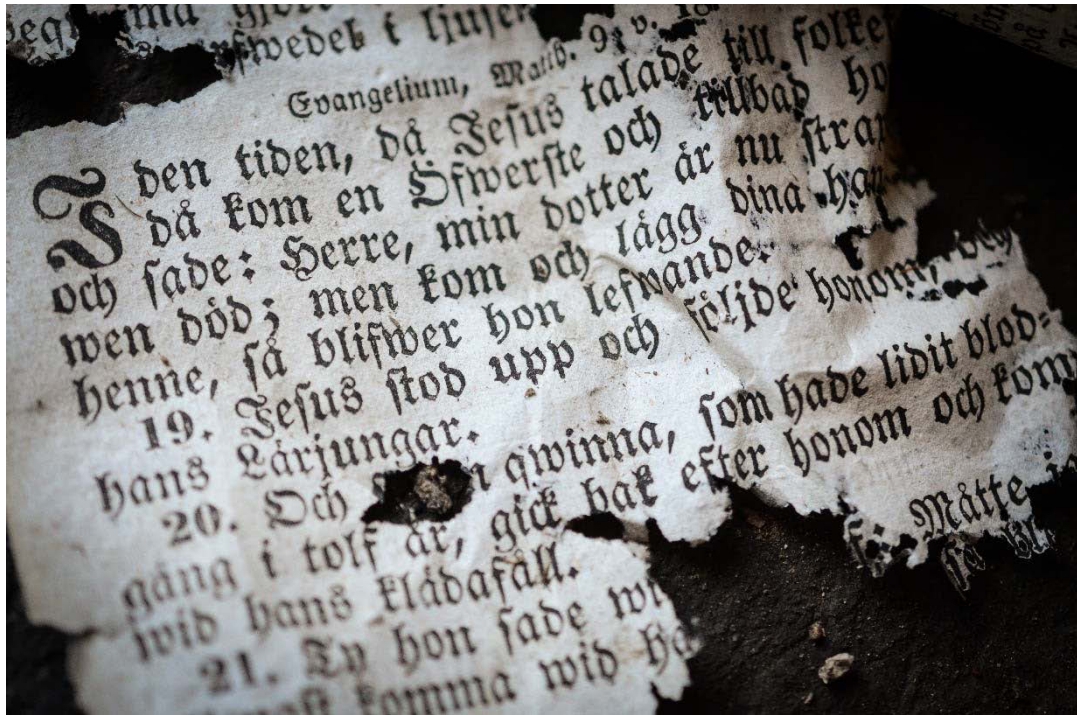 i ljuset
Evangelium, Matth. 9: v.
I den tiden, då Jesus talade till folket
då kom en Öfwerste och tillbad ho
och sade: Herre, min dotter är nu strax
wen död; men kom och lägg dina han
henne, så blifwer hon lefwande.
19. Jesus stod upp och följde honom, och
hans Lärjungar.
20. Och qwinna, som hade lidit blod=
gång i tolf år, gick bak efter honom och kom
wid hans klädafåll. Måtte
21. Ty hon sade wi
komma wid ha